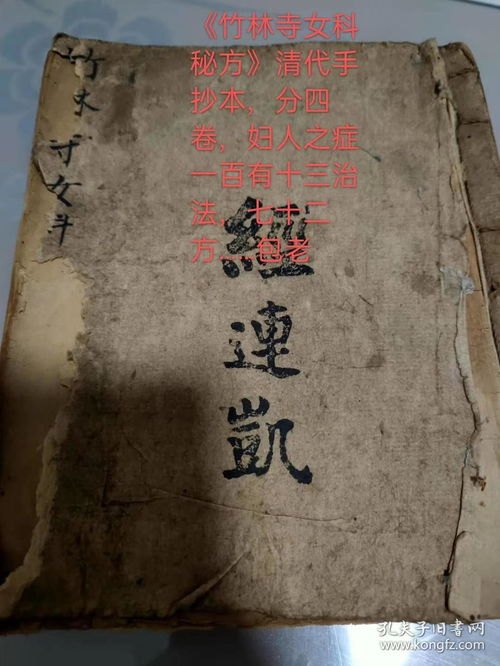 《竹林寺女科
秘方》清代手
抄本，分四
卷，妇人之症
一百有十三治
法，七十二
方……包老
竹林寺女科
經連凱
孔夫子旧书网
www.kongfz.com